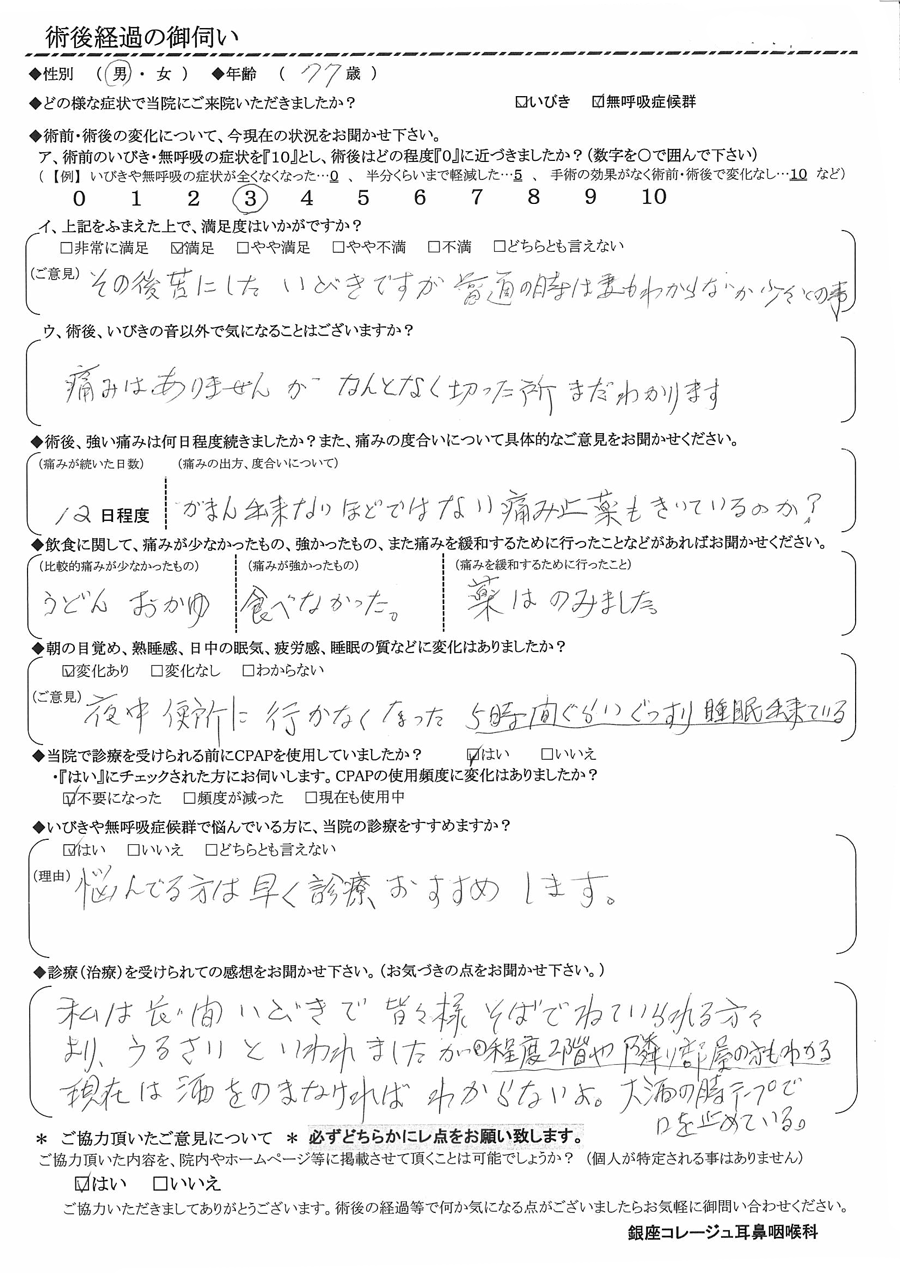 術後経過の御伺い
◆性別 （ 男 ・ 女 ） ◆年齢 （ 77 歳 ）
◆どの様な症状で当院にご来院いただきましたか？ ☑いびき ☑無呼吸症候群
◆術前・術後の変化について、今現在の状況をお聞かせ下さい。
ア、術前のいびき・無呼吸の症状を『10』とし、術後はどの程度『0』に近づきましたか？（数字を〇で囲んで下さい）
（【例】 いびきや無呼吸の症状が全くなくなった…0 、 半分くらいまで軽減した…5 、 手術の効果がなく術前・術後で変化なし…10 など）
0 1 2 3 4 5 6 7 8 9 10
イ、上記をふまえた上で、満足度はいかがですか？
□非常に満足 ☑満足 □やや満足 □やや不満 □不満 □どちらとも言えない
（ご意見） その後苦にした いびきですが 普通の時は妻もわからないが 少々との事
ウ、術後、いびきの音以外で気になることはございますか？
痛みはありませんが なんとなく切った所 まだわかります
◆術後、強い痛みは何日程度続きましたか？また、痛みの度合いについて具体的なご意見をお聞かせください。
（痛みが続いた日数） （痛みの出方、度合いについて）
12 日程度 がまん出来ないほどではない 痛み止薬もきいているのか？
◆飲食に関して、痛みが少なかったもの、強かったもの、また痛みを緩和するために行ったことなどがあればお聞かせください。
（比較的痛みが少なかったもの） （痛みが強かったもの） （痛みを緩和するために行ったこと）
うどん おかゆ 食べなかった。 薬はのみました。
◆朝の目覚め、熟睡感、日中の眠気、疲労感、睡眠の質などに変化はありましたか？
☑変化あり □変化なし □わからない
（ご意見） 夜中 便所に 行かなくなった 5時間ぐらいぐっすり睡眠出来ている
◆当院で診療を受けられる前にCPAPを使用していましたか？ ☑はい □いいえ
・『はい』にチェックされた方にお伺いします。CPAPの使用頻度に変化はありましたか？
☑不要になった □頻度が減った □現在も使用中
◆いびきや無呼吸症候群で悩んでいる方に、当院の診療をすすめますか？
☑はい □いいえ □どちらとも言えない
（理由） 悩んでる方は早く診療おすすめします。
◆診療（治療）を受けられての感想をお聞かせ下さい。（お気づきの点をお聞かせ下さい。）
私は長い間いびきで 皆々様 そばでねていられる方々
より、うるさいといわれましたが 程度 2階や 隣り部屋の方もわかる
現在は酒をのまなければ わからないよ。大酒の時テープで
口を止めている。
＊ ご協力頂いたご意見について ＊ 必ずどちらかにレ点をお願い致します。
ご協力頂いた内容を、院内やホームページ等に掲載させて頂くことは可能でしょうか？ （個人が特定される事はありません）
☑はい □いいえ
ご協力いただきましてありがとうございます。術後の経過等で何か気になる点がございましたらお気軽に御問い合わせください。
銀座コレージュ耳鼻咽喉科